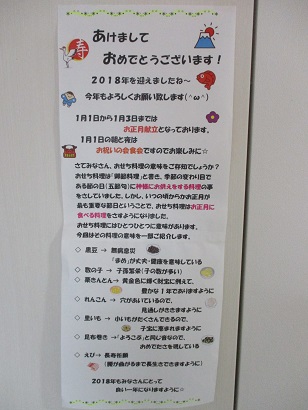 寿
あけまして
おめでとうございます!
2018年を迎えましたね~
今年もよろしくお願い致します(^ω^)
1月1日から1月3日までは
お正月献立となっております。
1月1日の朝と夜は
お祝いの会食会ですのでお楽しみに☆
さてみなさん、おせち料理の意味をご存知でしょうか?
おせち料理は「御節料理」と書き、季節の変わり目で
ある節の日(五節句)に神様にお供えをする料理の事
をさしていました。しかし、いつの頃からかお正月が
最も重要な節日ということで、おせち料理はお正月に
食べる料理をさすようになりました。
おせち料理にはひとつひとつに意味があります。
今回はどの料理の意味を一部ご紹介します。
◇ 黒豆 → 無病息災
「まめ」が丈夫・健康を意味している
◇ 数の子 → 子孫繁栄(子の数が多い)
◇ 栗きんとん → 黄金色に輝く財宝に例えて、
豊かな1年でありますように
◇ れんこん → 穴があいているので、
見通しがききますように
◇ 里いも → 小いもがたくさんできるので、
子宝に恵まれますように
◇ 昆布巻き → 「よろこぶ」と同じ音なので、
おめでたさを表している
◇ えび → 長寿祈願
(腰が曲がるまで長生きできますように)
2018年もみなさんにとって
良い一年になりますように☆